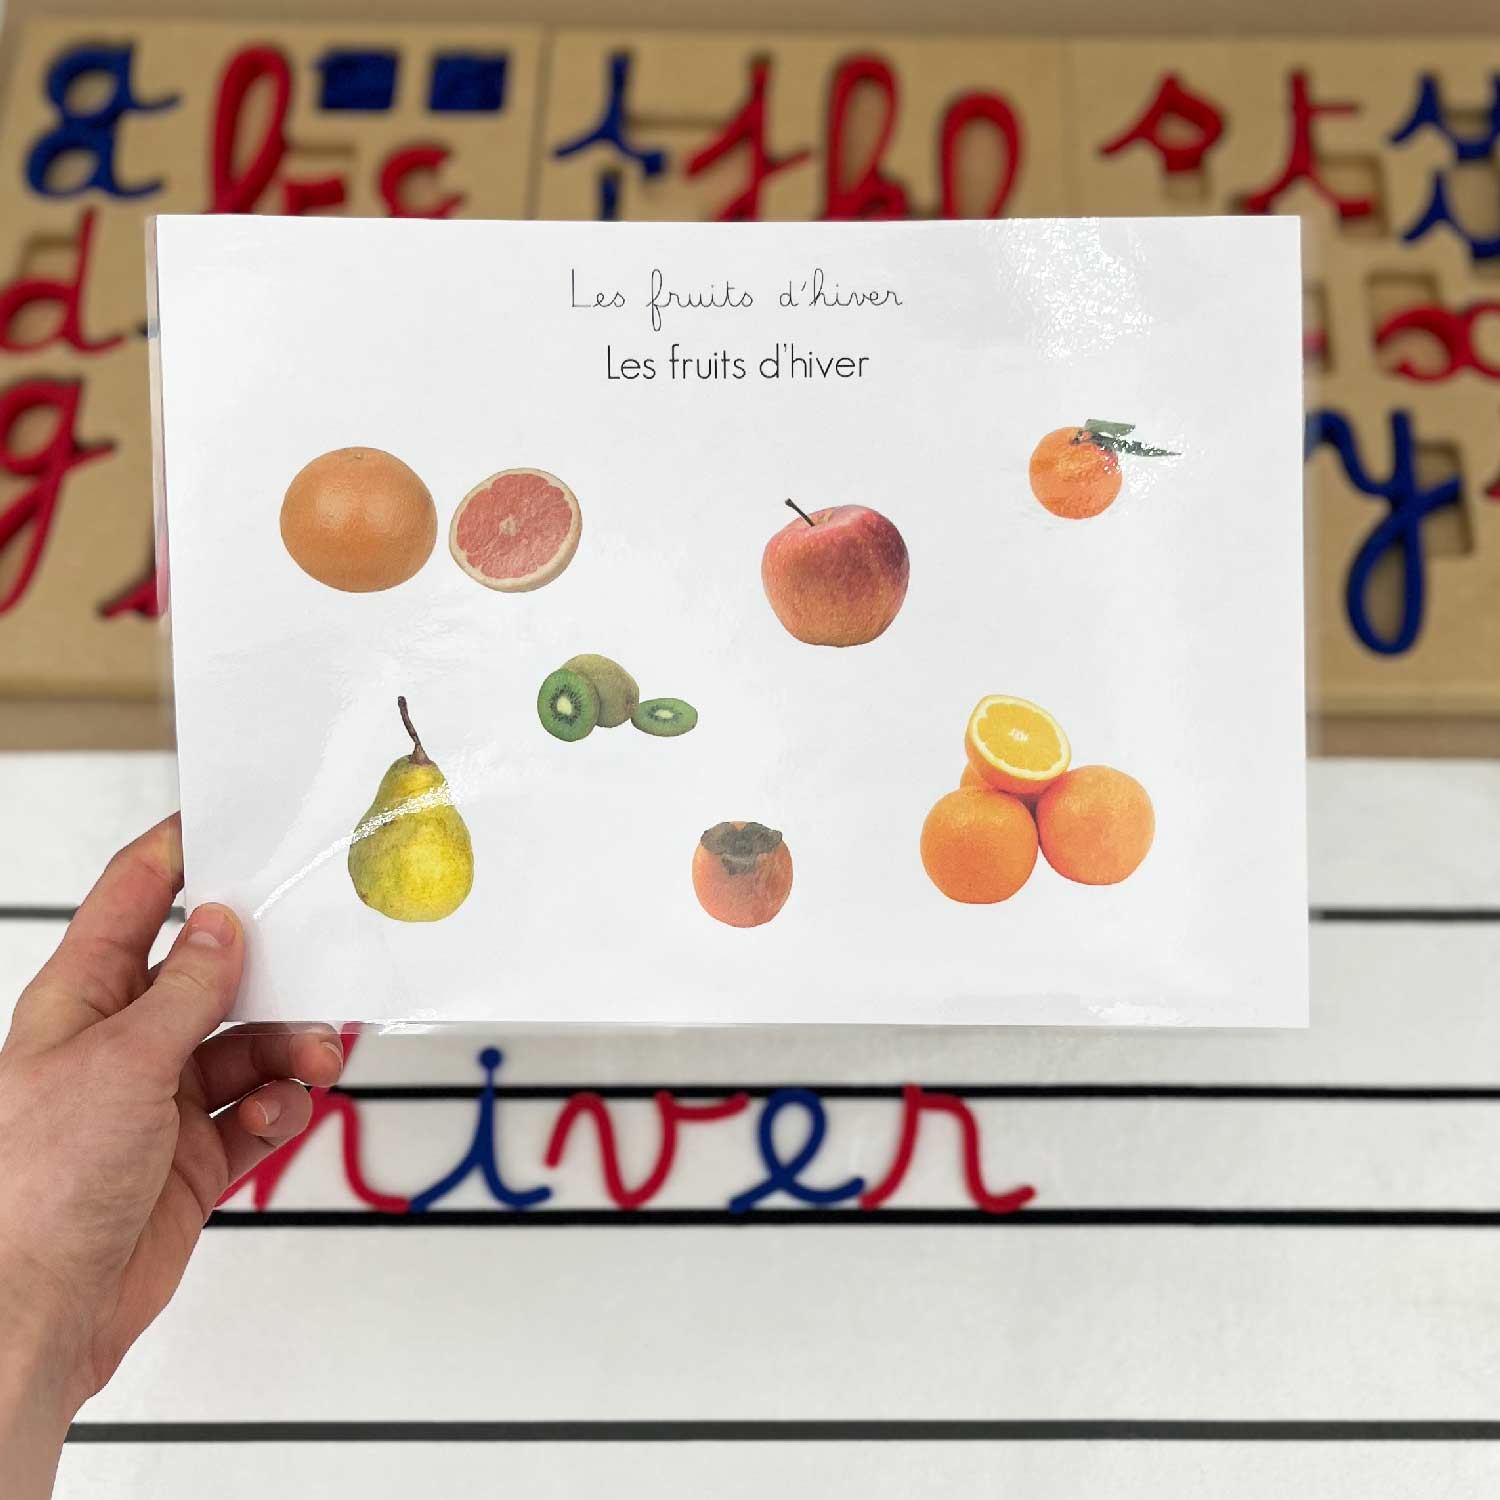 Les fruits d'hiver
Les fruits d'hiver
hiver